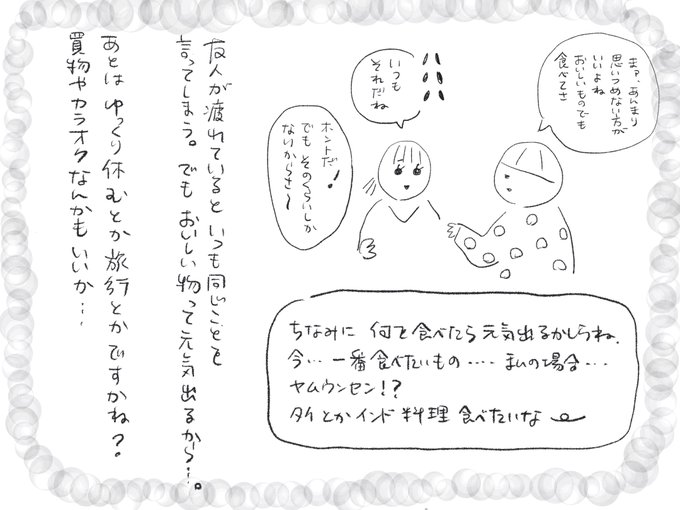 まァ、あんまり
思いつめない方が
いいよね
おいしいものでも
食べてさ
いつも
それだね
ホントだ!
でも そのくらいしか
ないからさ〜
友人が疲れていると いつも同じことを
言ってしまう。でも おいしい物って元気出るから…。
あとは ゆっくり休むとか旅行とかですかね?。
買物やカラオケなんかもいいか…
ちなみに 何を食べたら元気出るかしらね.
今… 一番食べたいもの ‥‥ まいの場合…
ヤムウンセン!?
タイとかインド料理 食べたいな